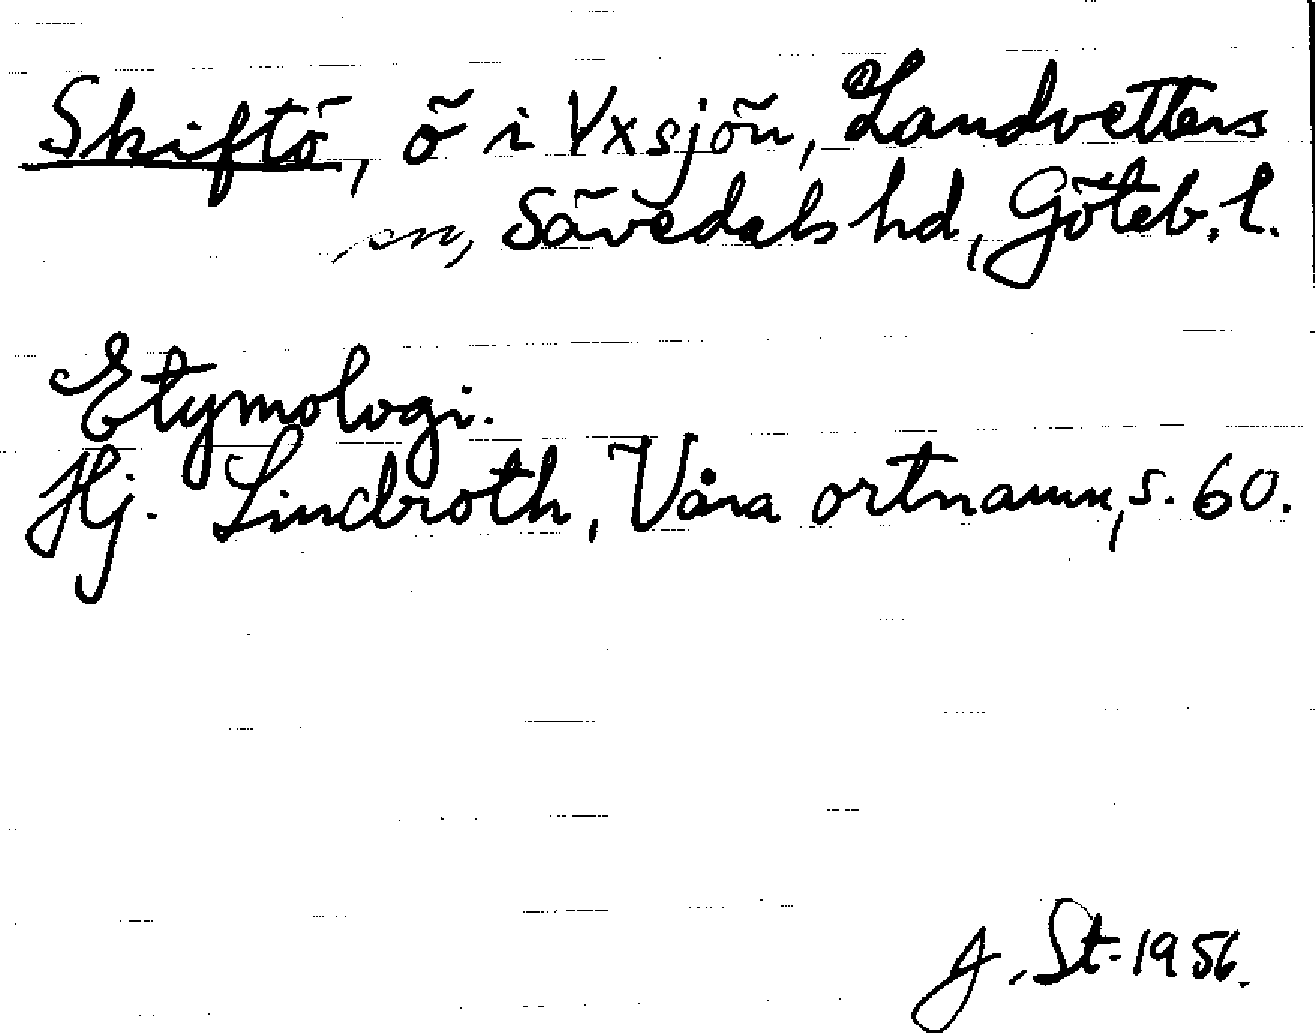 Skiftö, ö i Yxsjön, Landvetters
sn, Sävedals hd, Göteb. l.
Etymologi.
Hj. Lindroth, Våra ortnamn, s. 60.
J. St. 1956.